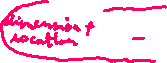 dimension +
location